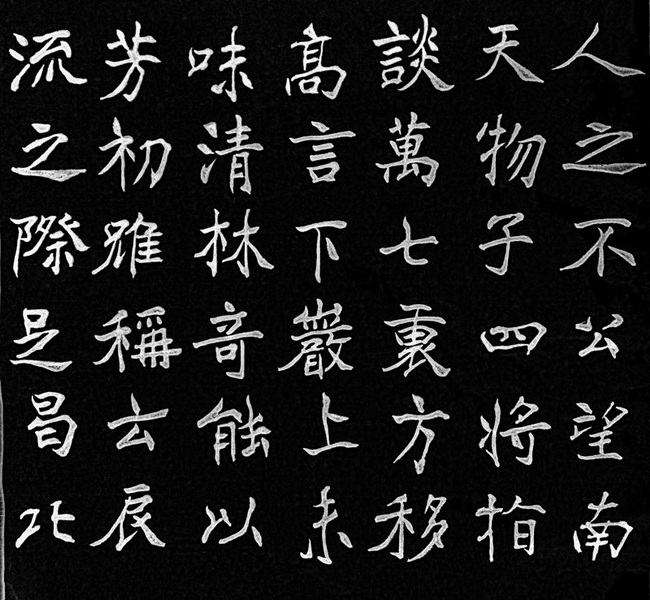 人之不公望南
天物子四將指
談萬七裏方移
高言下巖上未
味清林奇能以
芳初雖稱云辰
流之際是昌北